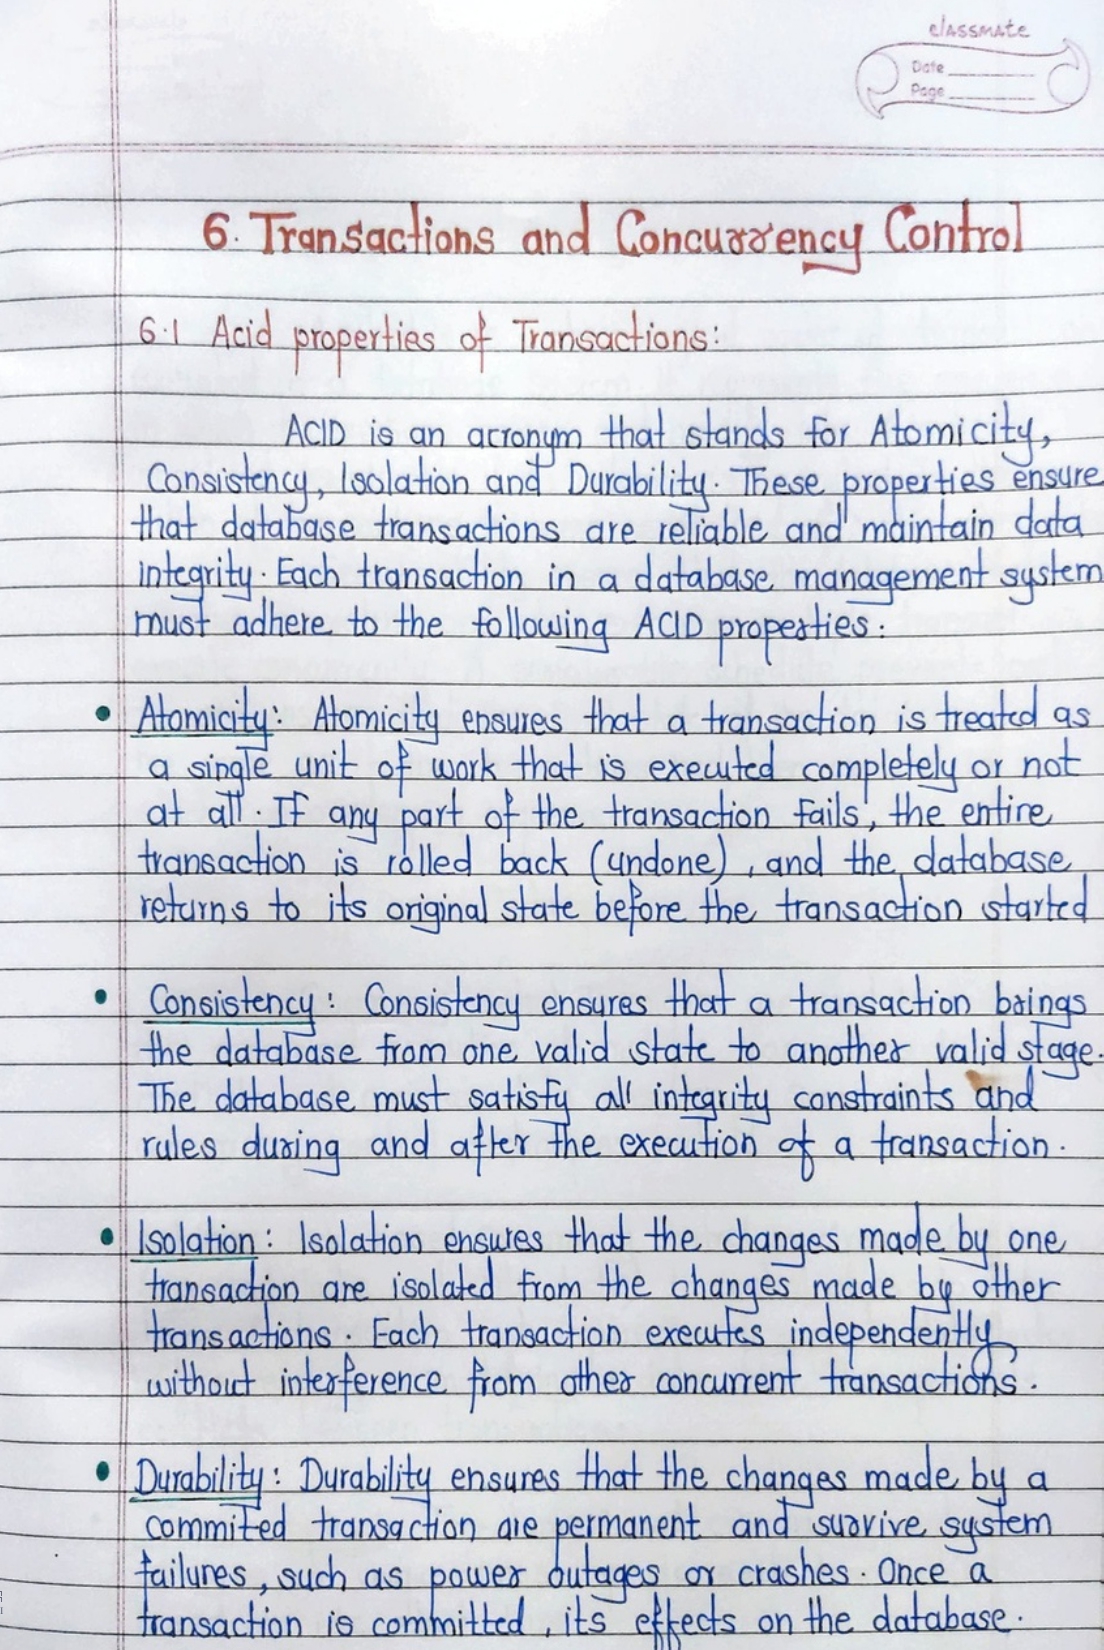 classmate
Date
Page
6. Transactions and Concurrency Control
6.1 Acid properties of Transactions:
ACID is an acronym that stands for Atomicity,
Consistency, Isolation and Durability. These properties ensure
that database transactions are reliable and maintain data
integrity. Each transaction in a database management system
must adhere to the following ACID properties:
• Atomicity: Atomicity ensures that a transaction is treated as
a single unit of work that is executed completely or not
at all. If any part of the transaction fails, the entire
transaction is rolled back (undone), and the database
returns to its original state before the transaction started
• Consistency: Consistency ensures that a transaction brings
the database from one valid state to another valid stage.
The database must satisfy all integrity constraints and
rules during and after the execution of a transaction.
• Isolation: Isolation ensures that the changes made by one
transaction are isolated from the changes made by other
transactions. Each transaction executes independently
without interference from other concurrent transactions.
• Durability: Durability ensures that the changes made by a
commited transaction are permanent and survive system
failures, such as power outages or crashes. Once a
transaction is committed, its effects on the database.